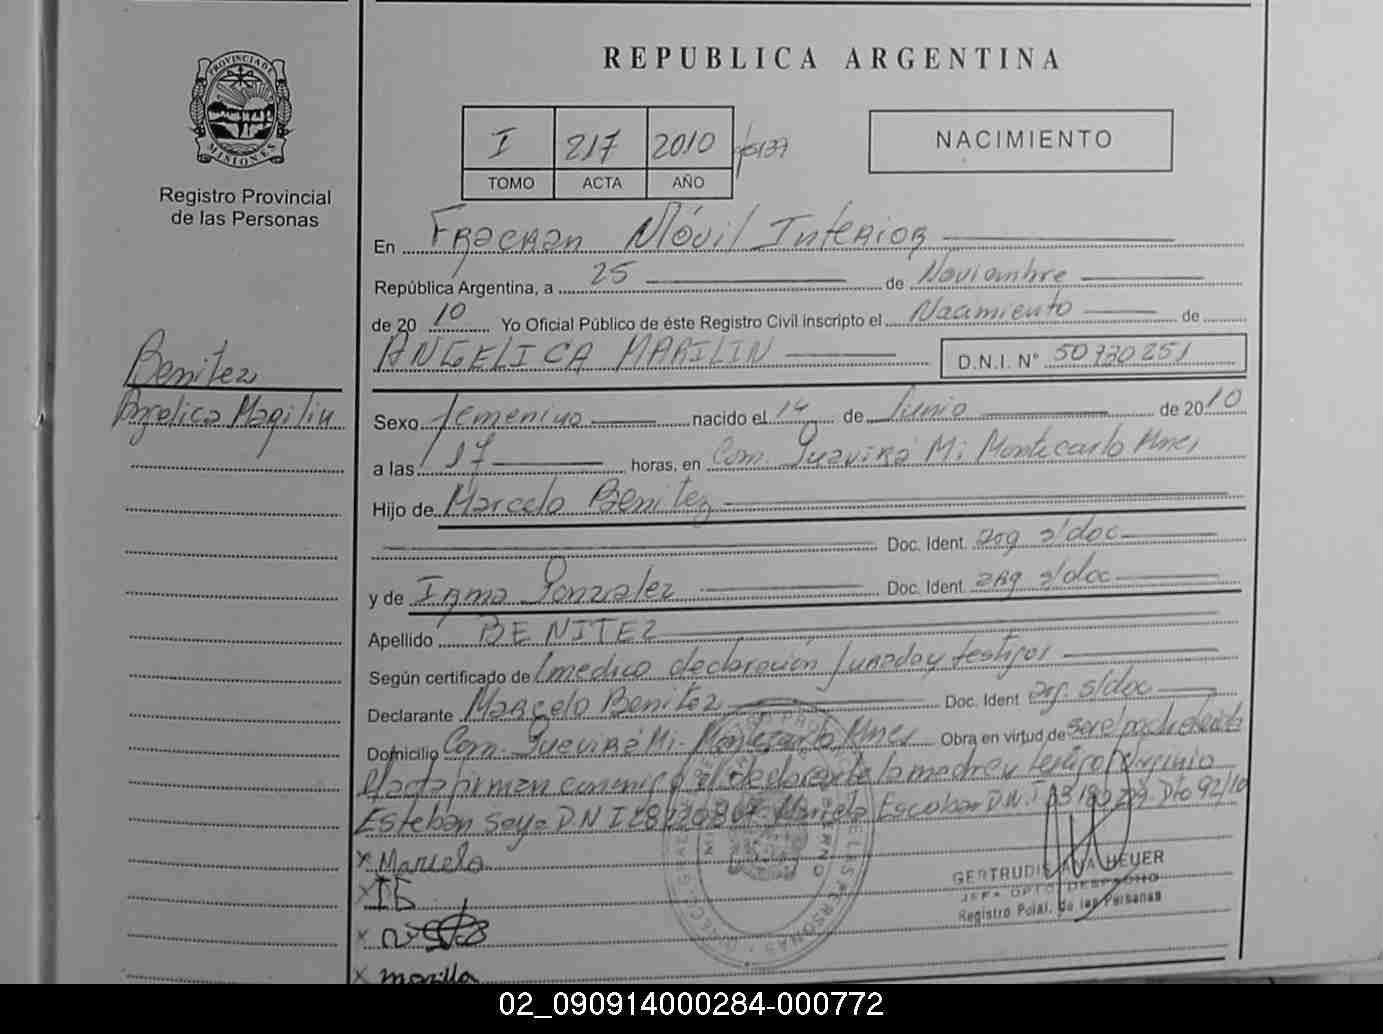 REPUBLICA ARGENTINA
PROVINCIA DE
MISIONES
Registro Provincial
de las Personas
I 217 2010
TOMO ACTA AÑO
NACIMIENTO
En Fracran Móvil Interior
República Argentina, a 25 de Noviembre
de 20 10 Yo Oficial Público de éste Registro Civil inscripto el Nacimiento de
ANGELICA MARILIN D.N.I. N° 50730251
Benitez
Angelica Marilin
Sexo femenino nacido el 14 de Junio de 2010
a las 17 horas, en Com. Guavirá Mi Montecarlo Mnes
Hijo de Marcelo Benitez
Doc. Ident. arg s/doc
y de Irma Gonzalez Doc. Ident. arg s/doc
Apellido BENITEZ
Según certificado de médico declaración Jurada y testigos
Declarante Marcelo Benitez Doc. Ident arg. s/doc
Domicilio Com. Guavirá Mi- Montecarlo Mnes Obra en virtud de
acta firman conmigo el declarante la madre y testigos
Esteban D.N.I Mariela Escobar D.N.I Dto 92/10
x Marcelo
x IG
x
x
GERTRUDIS ANA HEUER
JEFA DPTO DESPACHO
Registro Pcial. de las Personas
02_090914000284-000772